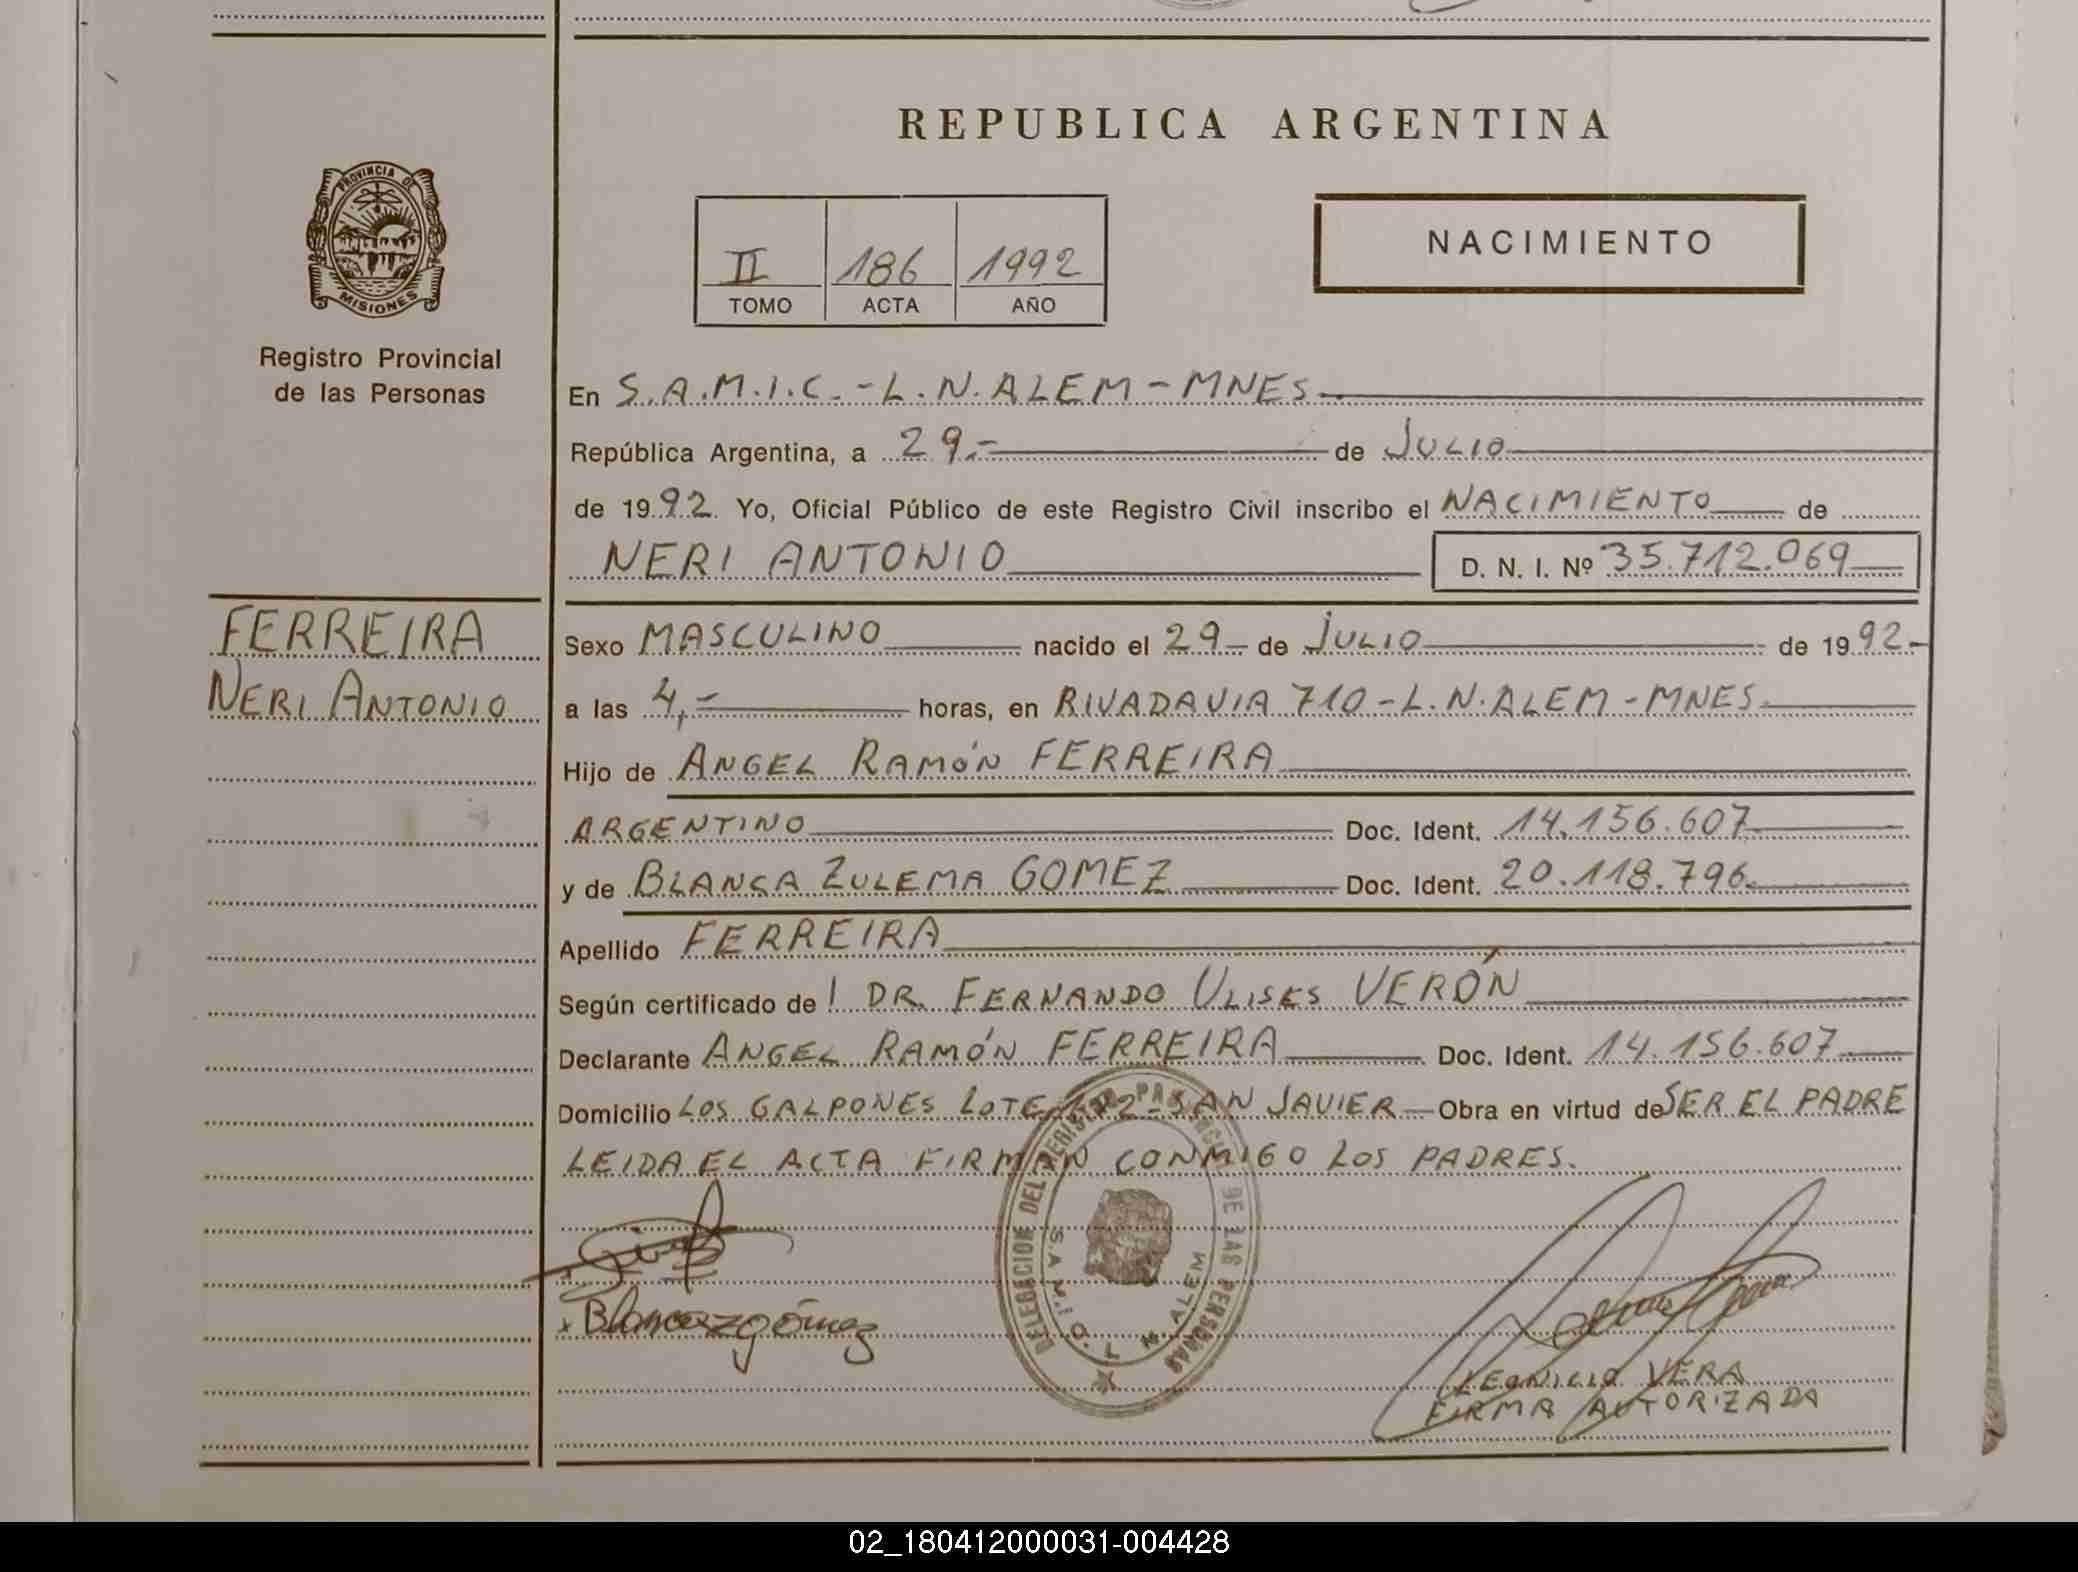 REPUBLICA ARGENTINA
PROVINCIA DE
MISIONES
Registro Provincial
de las Personas
II 186 1992
TOMO ACTA AÑO
NACIMIENTO
En S.A.M.I.C.-L.N.ALEM-MNES
República Argentina, a 29.- de JULIO
de 1992. Yo, Oficial Público de este Registro Civil inscribo el NACIMIENTO de
NERI ANTONIO D. N. I. Nº 35.712.069
FERREIRA
NERI ANTONIO
Sexo MASCULINO nacido el 29- de JULIO de 1992-
a las 4,- horas, en RIVADAVIA 710-L.N.ALEM-MNES.
Hijo de ANGEL RAMÓN FERREIRA
ARGENTINO Doc. Ident. 14.156.607
y de BLANCA ZULEMA GOMEZ Doc. Ident. 20.118.796.
Apellido FERREIRA
Según certificado de l DR. FERNANDO ULISES VERÓN
Declarante ANGEL RAMÓN FERREIRA Doc. Ident. 14.156.607
Domicilio LOS GALPONES LOTE SAN JAVIER Obra en virtud de SER EL PADRE
LEIDA EL ACTA FIRMAN CONMIGO LOS PADRES.
DELEGACION DEL REGISTRO PROVINCIAL DE LAS PERSONAS
x Blanca z gómez
LEONICIO VERA
FIRMA AUTORIZADA
02_180412000031-004428